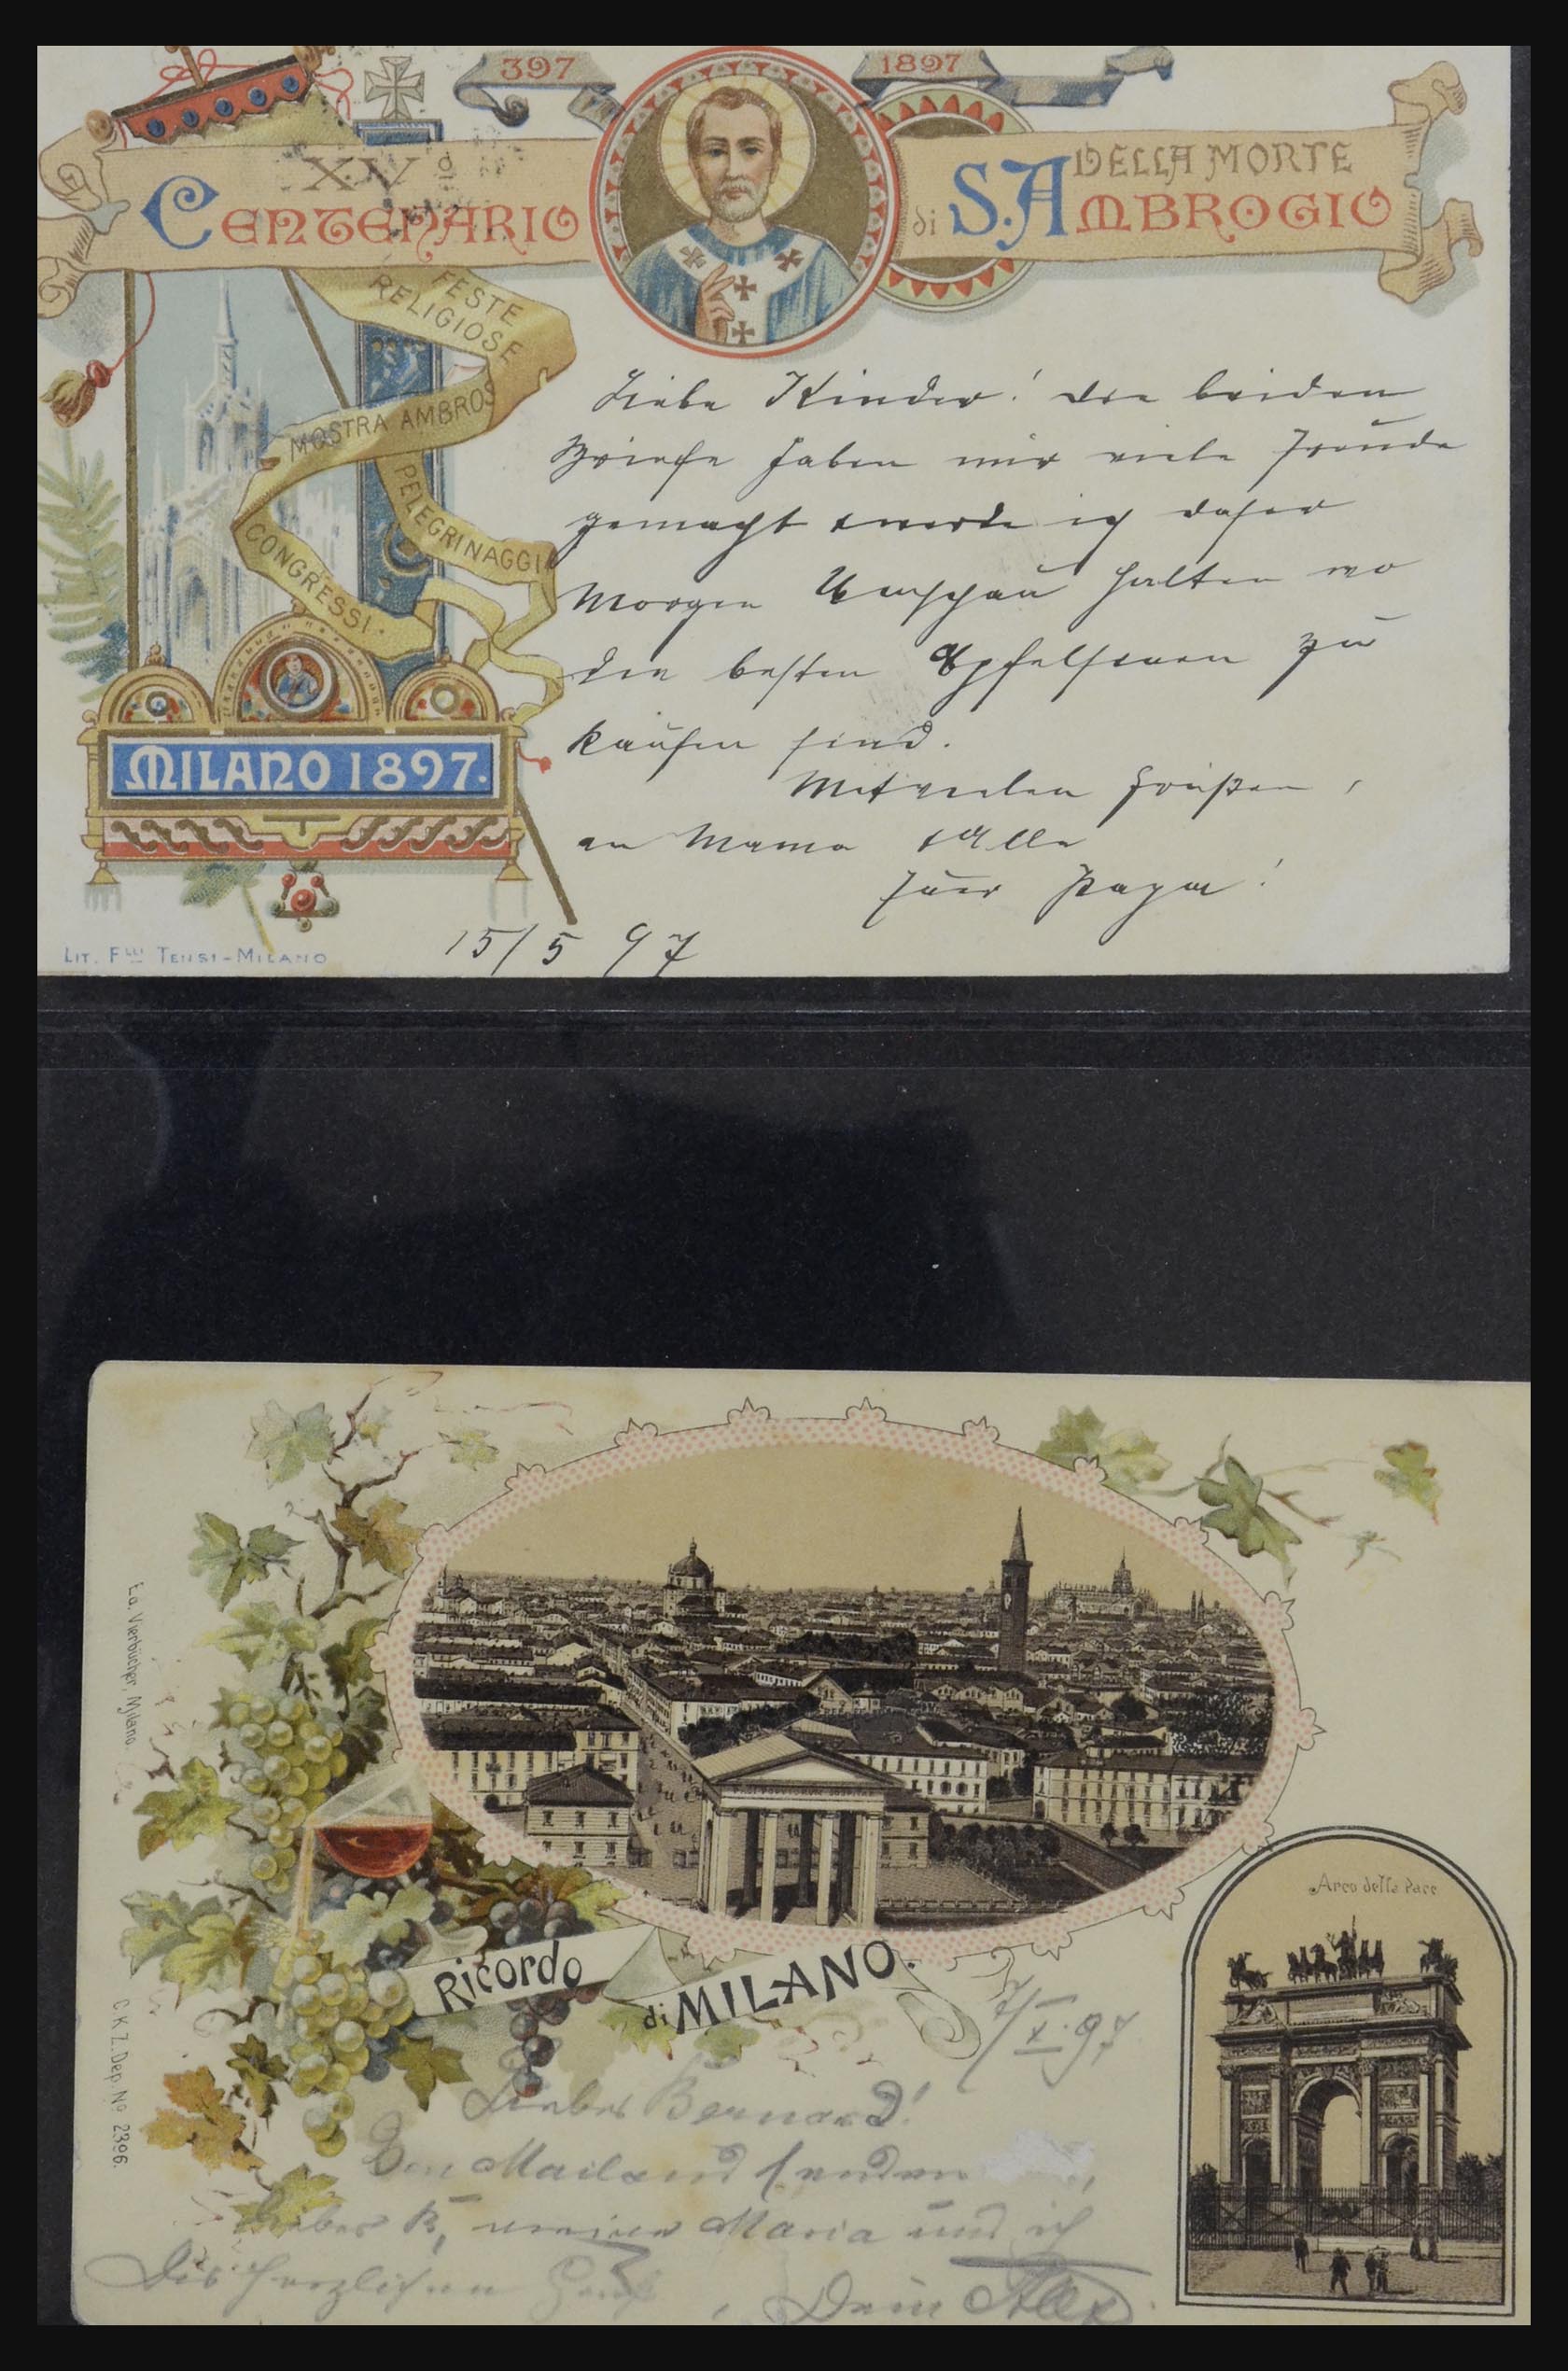 397
1897
XIVº
CENTENARIO
DELLA MORTE
di S. AMBROGIO
FESTE
RELIGIOSE
MOSTRA AMBROS
PELEGRINAGGI
CONGRESSI.
MILANO 1897.
Liebe Kinder! die beiden
Briefe haben mir viele Freude
gemacht & werde ich daher
Morgen Umschau halten wo
die besten Apfelsinen zu
kaufen sind.
Mit vielen Grüßen
an Mama & Alle
Euer Papa!
15/5 97
LIT. FLLI TENSI-MILANO
Ed. Vierbücher, Milano.
C.K.Z. Dep. Nº 2396.
Arco della Pace
Ricordo
di MILANO.
7/X.97
Lieber Bernard!
Mailand senden
lieber B, meine Maria und ich
Dir herzlichen
Dein